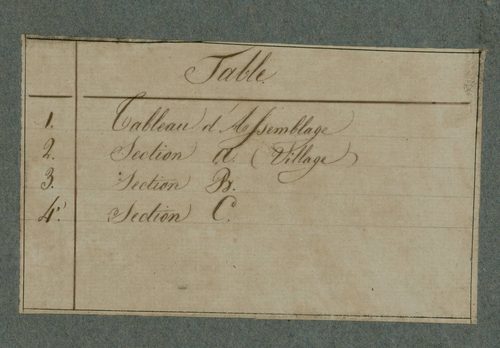 Table
1. Tableau d'Assemblage
2. Section A. (Village)
3. Section B.
4. Section C.